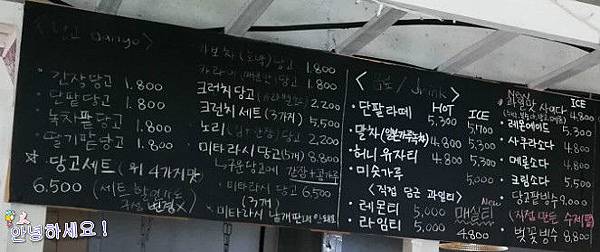 <당고 Dango>
· 간장당고 1.800
· 단팥당고 1.800
· 녹차팥당고 1.800
· 딸기팥당고 1.800
☆ 당고세트 (위 4가지맛)
6.500 (세트
변경X)
당고 1.800
당고 1.800
크런치 당고 2,200
크런치 세트 (3개) 5,500
노리 당고 2,200
미타라시당고(5개) 8.800
당고에 간장+콩가루
· 미타라시 당고 6,500
(3개)
· 미타라시 낱개판매 안돼요
<음료/drink>
HOT ICE
· 단팥라떼 5,300 5,700
· 말차 4,800 5,300
· 허니유자티 4,800 5,300
· 미숫가루 5,000
<직접 담근 과일티>
· 레몬티 5,000
· 라임티 5,000
New
매실티
4,800
NEW ICE
· 과일맛 사이다 4,800
· 레몬에이드 5,300
· 사쿠라소다 4,800
· 메론소다 4,800
· 크림소다 5,500
· 당고팥빙수 9,000
(직접 만든 수제팥)
· 벚꽃빙수 8,800
안녕하세요!